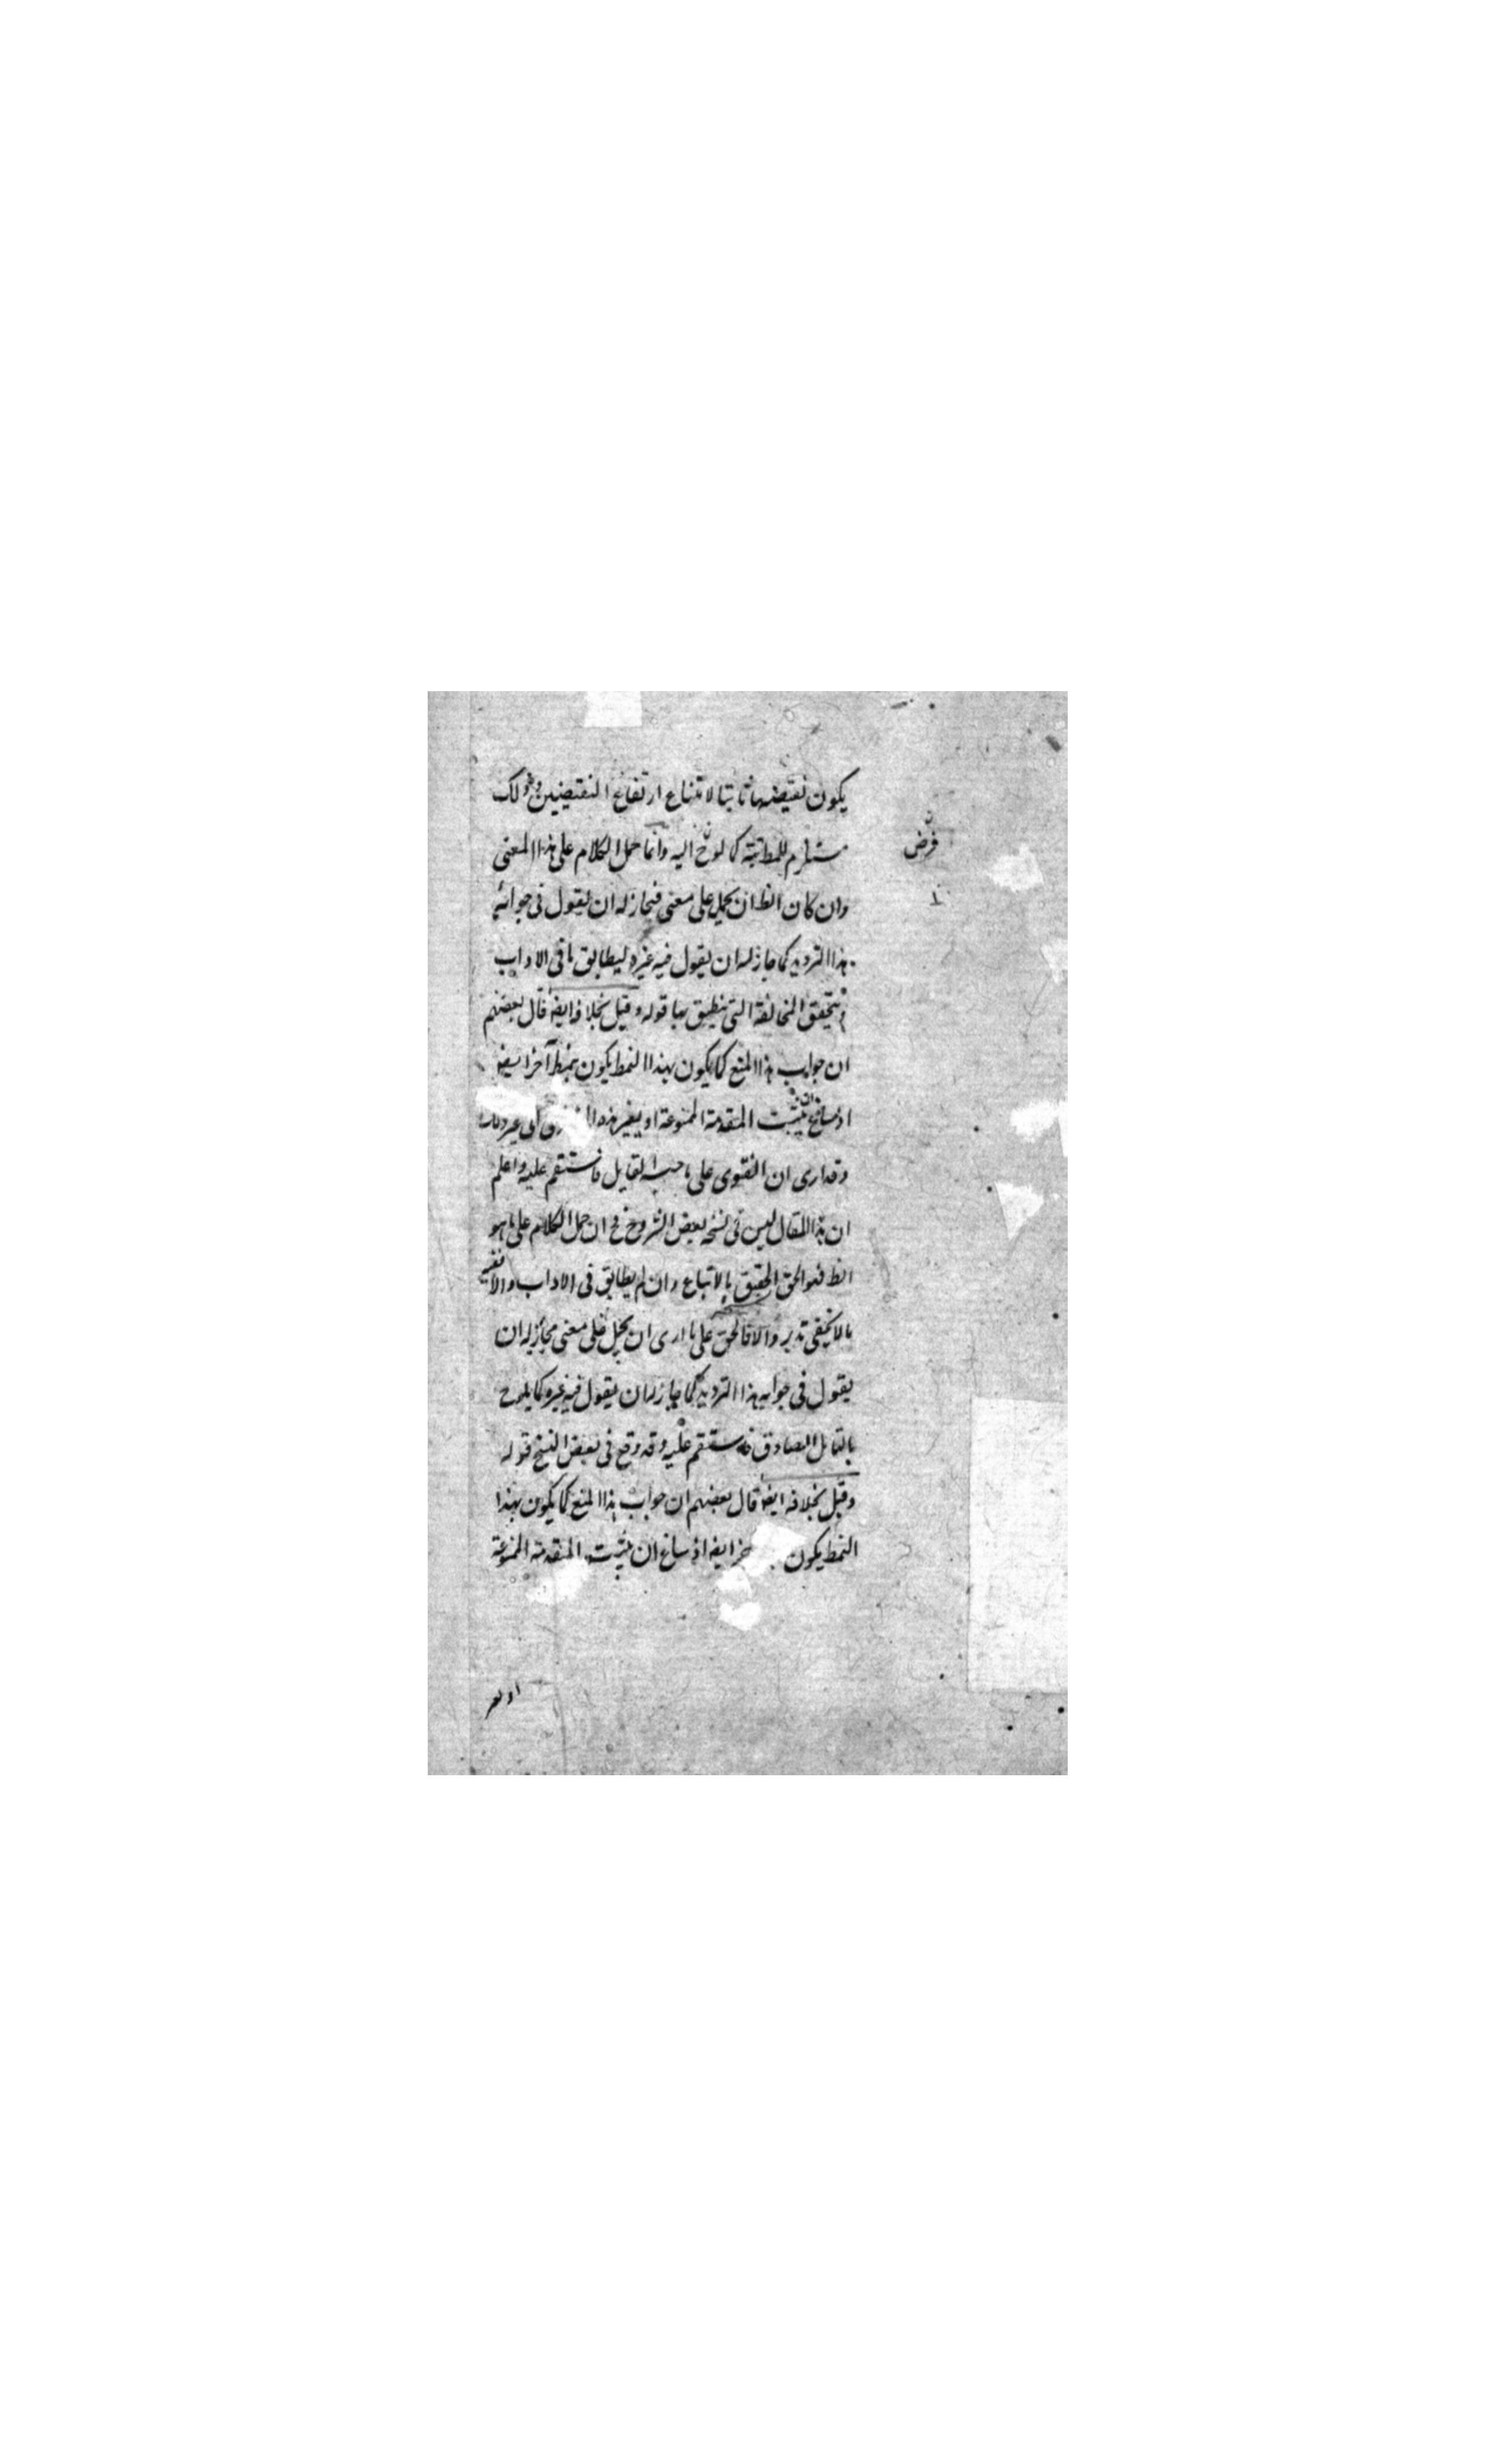 يكون نقيضها ثابتا لامتناع ارتفاع النقيضين وذلك
مستلزم للمطلقية كما لوح اليه وانما حمل الكلام على هذا المعنى
وان كان الظ ان يحمل على معنى فجاز له ان يقول فى جوابه
هذا الترديد كما جاز له ان يقول فيه غيره ليطابق ما فى الاداب
ويتحقق المخالفة التى ينطبق بها قوله وقيل بخلافه ايضا قال بعضهم
ان جواب هذا المنع كما يكون بهذا النمط يكون بنمط آخر ايضا
اذ ساغ ان يثبت المقدمة الممنوعة او يغير هذه الى غير ذلك
وقد ارى ان الفتوى على ما حسبه القايل فاستقم عليه واعلم
ان هذا المقال ليس فى نسخة بعض الشروح فح ان حمل الكلام على ما هو
الظ فهو الحق الحقيق بالاتباع وان لم يطابق فى الاداب والا ففيه
ما لا يخفى تدبر والا فالحق على ما ارى ان يحمل على معنى مجاز له ان
يقول فى جوابه هذا الترديد كما جاز له ان يقول فيه غيره كما يلوح
بالتامل الصادق فاستقم عليه وقد وقع فى بعض النسخ قوله
وقيل بخلافه ايضا قال بعضهم ان جواب هذا المنع كما يكون بهذا
النمط يكون ايضا اذ ساغ ان يثبت المقدمة الممنوعة
او يغير
فرض